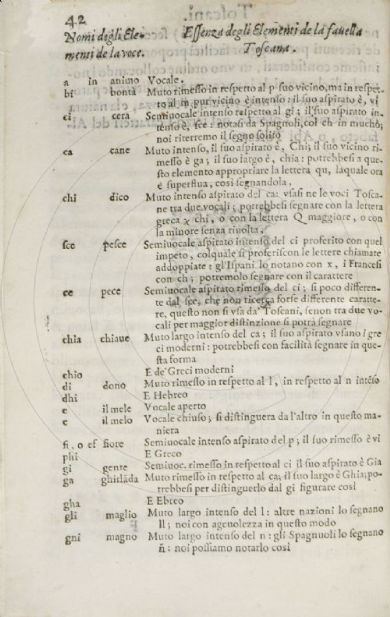 42
Nomi degli Ele-
menti de la voce.
Essenza degli Elementi de la favella
Toscana.
a in animo Vocale.
bi bontà Muto rimesso in respetto al p suo vicino, ma in respet-
to al m pur vicino è intenso: il suo aspirato è, vi
ci cera Semiuocale intenso respetto al gi; il suo aspirato in-
tenso è, sce: notasi da Spagnoli, col ch in mucho;
noi riterremo il segno solito
ca cane Muto intenso, il suo aspirato è, Chi; il suo vicino ri-
messo è ga; il suo largo è, chia: potrebbesi a que-
sto elemento appropriare la lettera qu, laquale ora
è superflua, così segnandola,
chi dico Muto intenso aspirato del ca: vsasi ne le voci Tosca-
ne tra due vocali; potrebbesi segnare con la lettera
greca χ chi, o con la lettera Q maggiore, o con
la minore senza rivolta,
sce pesce Semiuocale aspirato intenso del ci proferito con quel
impeto, colquale si proferiscon le lettere chiamate
addoppiate: gl'Ispani lo notano con x, i Francesi
con ch; potremolo segnare con il carattere
ce pece Semiuocale aspirato rimesso del ci; si poco differen-
te dal sce, che non ricerca forse differente caratte-
re, questo non si vsa da' Toscani, senon tra due vo-
cali per maggior distinzione si potrà segnare
chia chiaue Muto largo intenso del ca; il suo aspirato vsano i gre
ci moderni: potrebbesi con facilità segnare in que-
sta forma
chio E de' Greci moderni
di dono Muto rimesso in respetto al t, in respetto al n intēso
dhi E Hebreo
e il mele Vocale aperto
e il melo Vocale chiuso; si distinguerà da l'altro in questo ma-
niera
fi, o ef fiore Semiuocale intenso aspirato del p; il suo rimesso è vi
phi E Greco
gi gente Semiuoc. rimesso in respetto al ci il suo aspirato è Gia
ga ghiàda Muto rimesso in respetto al ca; il suo largo è Ghia; po-
trebbesi per distinguerlo dal gi figurare così
gha E Ebreo
gli maglio Muto largo intenso del l: altre nazioni lo segnano
ll; noi con ageuolezza in questo modo
gni magno Muto largo intenso del n: gli Spagnuoli lo segnano
ñ: noi possiamo notarlo così